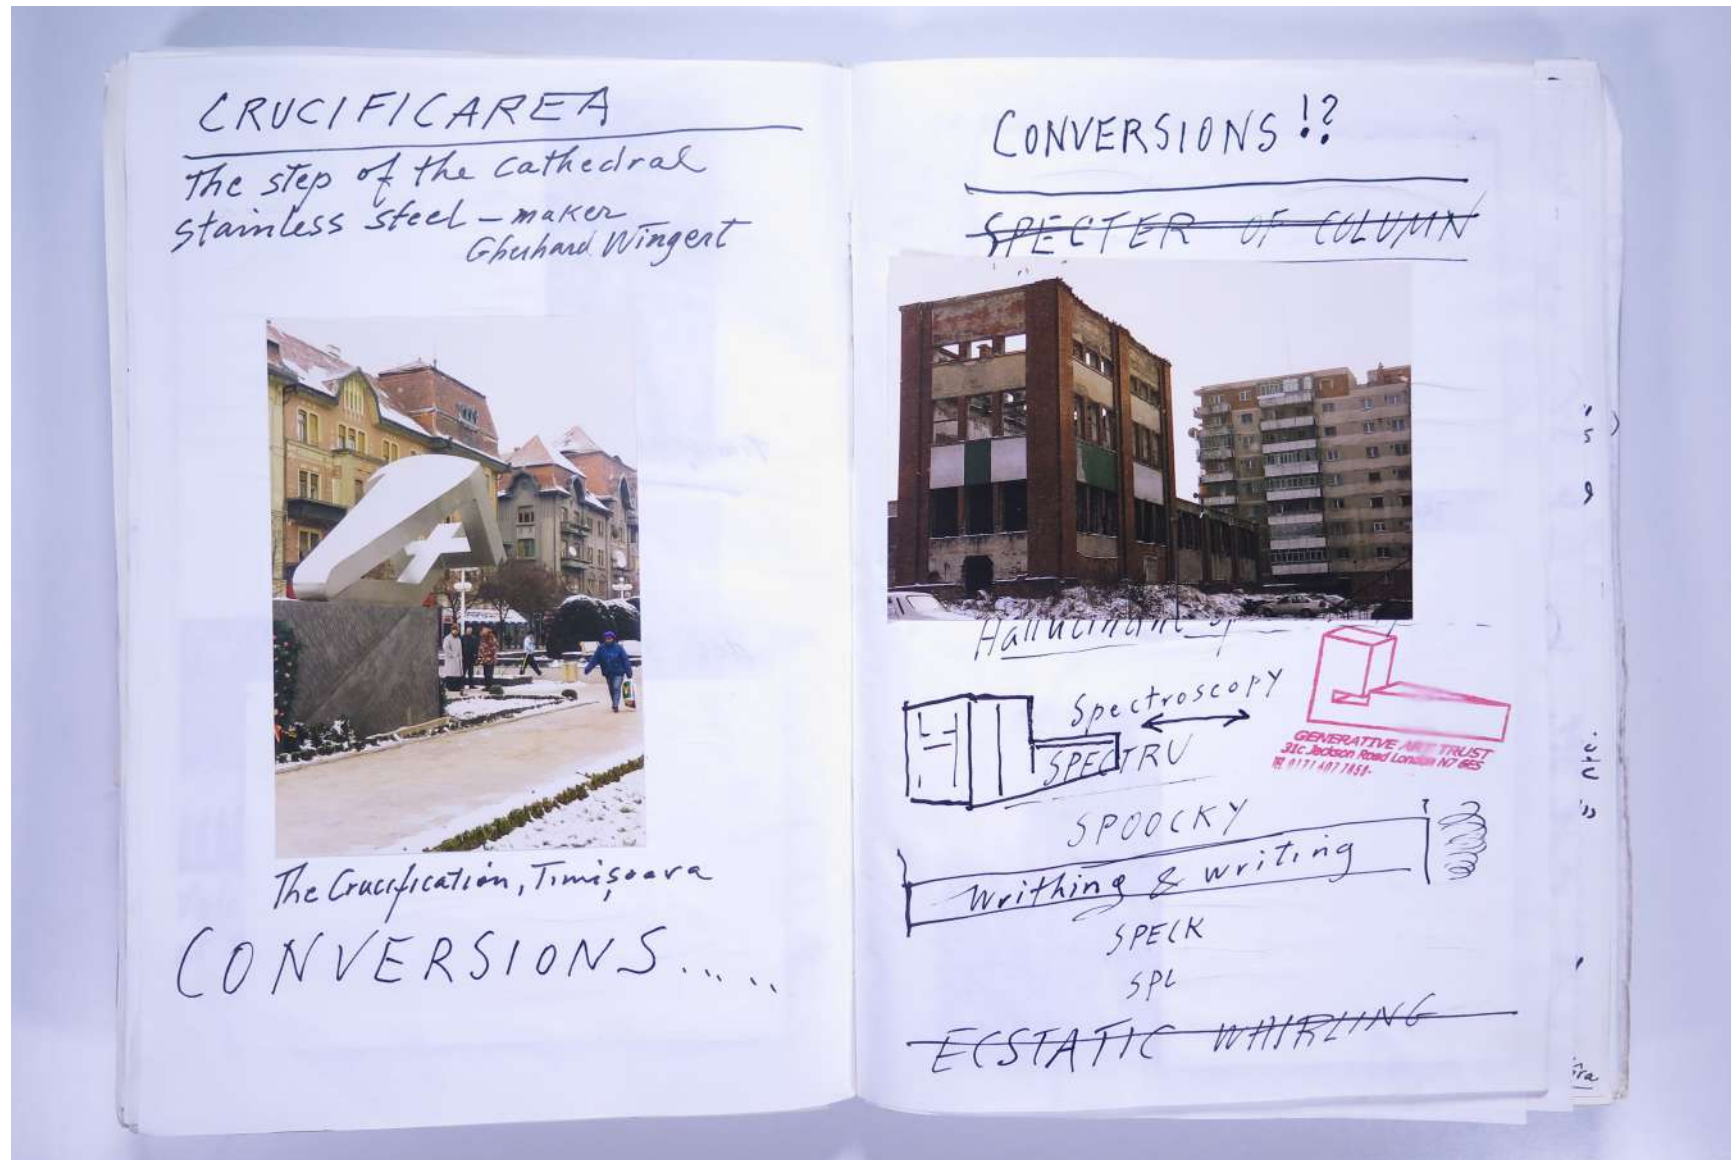 CRUCIFICAREA
The step of the cathedral
stainless steel – maker
Wingert
The Crucification, Timișoara
CONVERSIONS.....
CONVERSIONS!?
SPECTER OF COLUMN
Spectroscopy
SPECTRU
GENERATIVE ART TRUST
31c Jackson Road London N7 6ES
SPOOCKY
Writhing & writing
SPECK
SPL
ECSTATIC WHIRLING